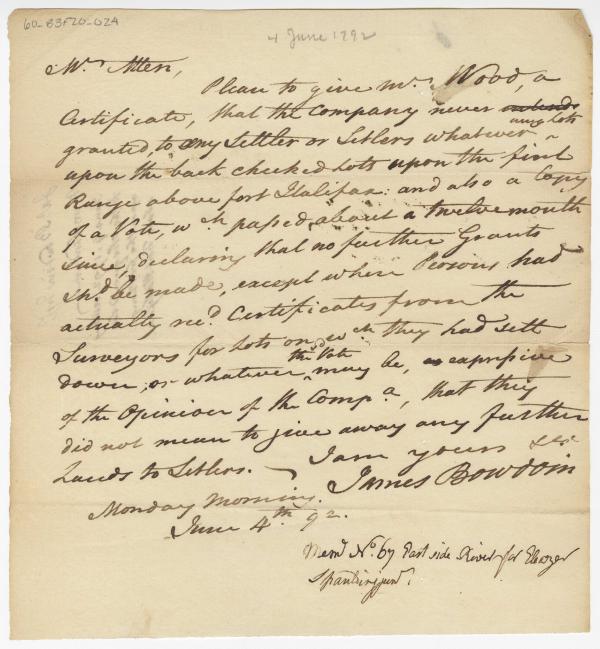 60-B3F20-024
4 June 1792
Mr. Allen,
Please to give Mr. Wood, a
Certificate, that the Company never
any Lots
granted, to any Settler or Setlers whatever
upon the back checked Lots upon the first
Range above fort Halifax: and also a Copy
of a Vote, wch. passed, about a twelvemonth
since, declaring that no further Grants
shd. be made, except where Persons had
actually recd. Certificates from the
Surveyors for Lots on wch. they had sett
down; or whatever the Vote may be, as expressive
of the Opinion of the Compa., that they
did not mean to give away any further
Lands to Setlers. — I am yours &c.
James Bowdoin
Monday Morning.
June 4th. 92.
Memo. No. 67 East side River for Ebenezer
Spaulding junr.